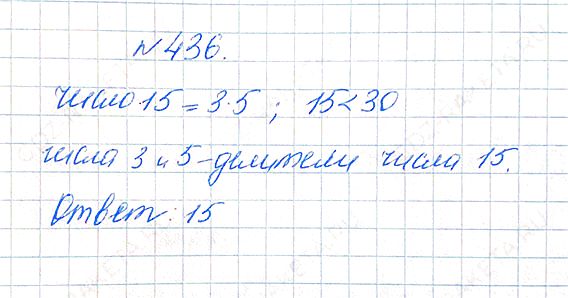 №436.
число 15 = 3·5 ; 15<30
числа 3 и 5-делители числа 15.
Ответ: 15